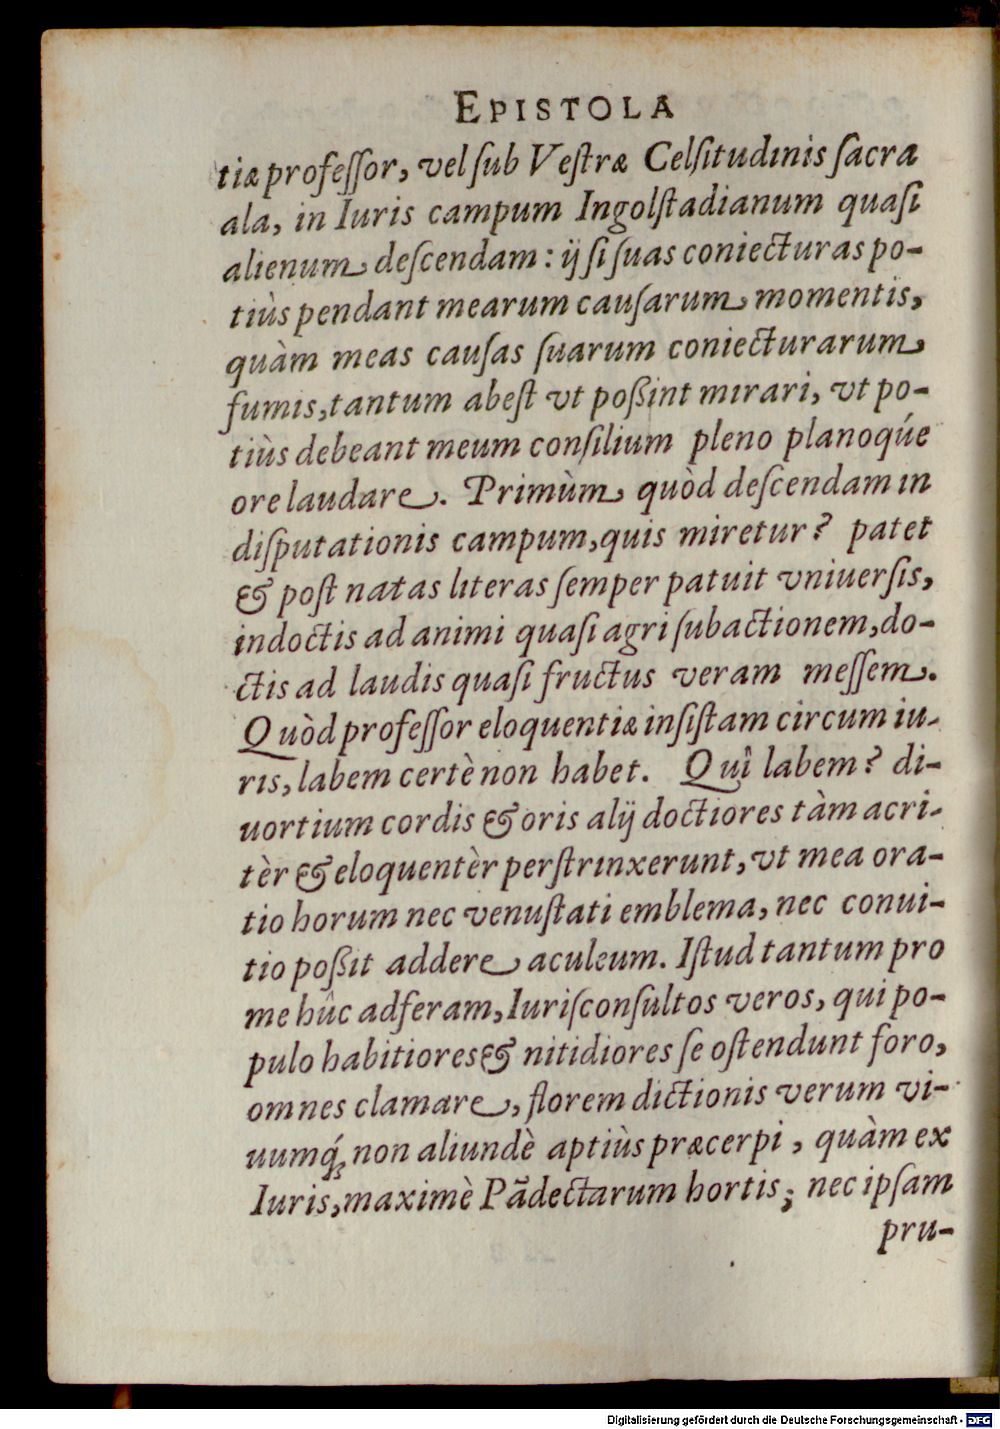 EPISTOLA
tiæ professor, vel sub Vestræ Celsitudinis sacra
ala, in Iuris campum Ingolstadianum quasi
alienum descendam: ij si suas coniecturas po-
tiùs pendant mearum causarum momentis,
quàm meas causas suarum coniecturarum
fumis, tantum abest vt poßint mirari, vt po-
tiùs debeant meum consilium pleno planoqúe
ore laudare. Primùm quòd descendam in
disputationis campum, quis miretur? patet
& post natas literas semper patuit vniuersis,
indoctis ad animi quasi agri subactionem, do-
ctis ad laudis quasi fructus veram messem.
Quòd professor eloquentiæ insistam circum iu-
ris, labem certè non habet. Quî labem? di-
uortium cordis & oris alij doctiores tàm acri-
tèr & eloquentèr perstrinxerunt, vt mea ora-
tio horum nec venustati emblema, nec conui-
tio poßit addere aculeum. Istud tantum pro
me hûc adferam, Iurisconsultos veros, qui po-
pulo habitiores & nitidiores se ostendunt foro,
omnes clamare, florem dictionis verum vi-
uumq́; non aliundè aptiùs præcerpi, quàm ex
Iuris, maximè Pãdectarum hortis; nec ipsam
pru-
Digitalisierung gefördert durch die Deutsche Forschungsgemeinschaft - DFG